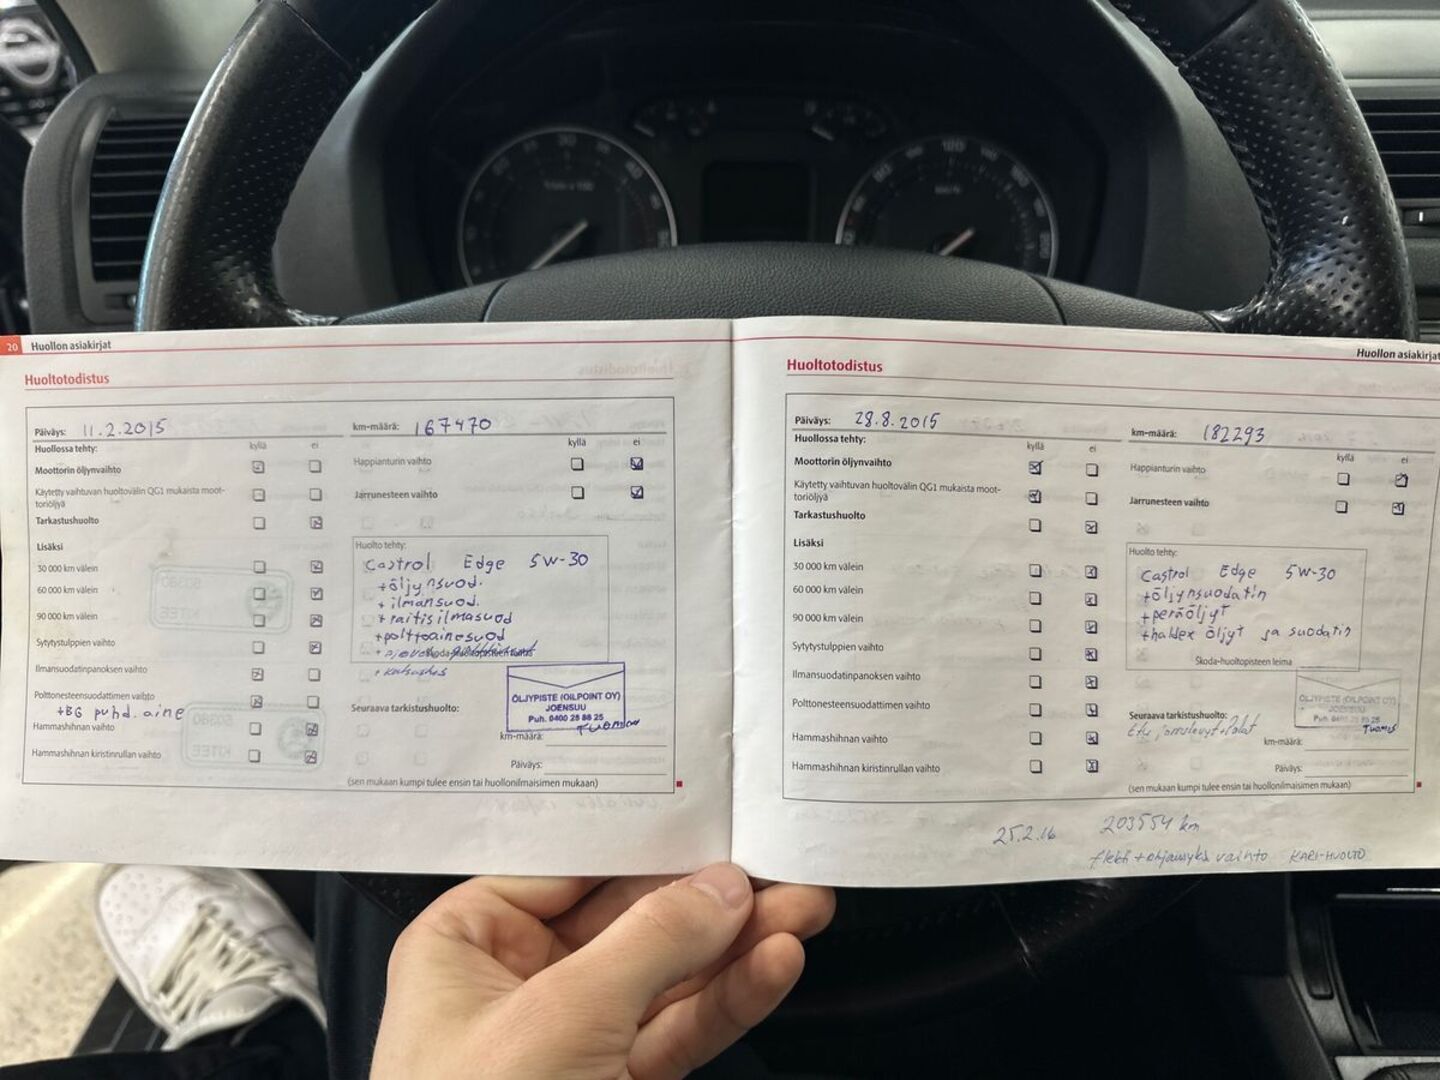 20 Huollon asiakirjat
Huoltotodistus
Päiväys: 11.2.2015
km-määrä: 167470
Huollossa tehty:
kyllä ei
kyllä ei
Moottorin öljynvaihto
Happianturin vaihto
Käytetty vaihtuvan huoltovälin QG1 mukaista moot-
toriöljyä
Jarrunesteen vaihto
Tarkastushuolto
Lisäksi
30 000 km välein
60 000 km välein
90 000 km välein
Sytytystulppien vaihto
Ilmansuodatinpanoksen vaihto
Polttonesteensuodattimen vaihto
+BG puhd.aine
Hammashihnan vaihto
Hammashihnan kiristinrullan vaihto
Huolto tehty:
Castrol Edge 5W-30
+öljynsuod.
+ilmansuod.
+raitisilmasuod
+polttoainesuod
Skoda-huoltopisteen leima
ÖLJYPISTE (OILPOINT OY)
JOENSUU
Puh. 0400 28 88 25
Tuomas
Seuraava tarkistushuolto:
km-määrä:
Päiväys:
(sen mukaan kumpi tulee ensin tai huollonilmaisimen mukaan)
Huollon asiakirjat
Huoltotodistus
Päiväys: 28.8.2015
km-määrä: 182293
Huollossa tehty:
kyllä ei
kyllä ei
Moottorin öljynvaihto
Happianturin vaihto
Käytetty vaihtuvan huoltovälin QG1 mukaista moot-
toriöljyä
Jarrunesteen vaihto
Tarkastushuolto
Lisäksi
30 000 km välein
60 000 km välein
90 000 km välein
Sytytystulppien vaihto
Ilmansuodatinpanoksen vaihto
Polttonesteensuodattimen vaihto
Hammashihnan vaihto
Hammashihnan kiristinrullan vaihto
Huolto tehty:
Castrol Edge 5W-30
+öljynsuodatin
+peräöljyt
+haldex öljyt ja suodatin
Škoda-huoltopisteen leima
ÖLJYPISTE (OILPOINT OY)
JOENSUU
Tuomas
Seuraava tarkistushuolto:
Etu jarrulevyt+palat
km-määrä:
Päiväys:
(sen mukaan kumpi tulee ensin tai huollonilmaisimen mukaan)
25.2.16 203554 km
vaihto KARI-HUOLTO